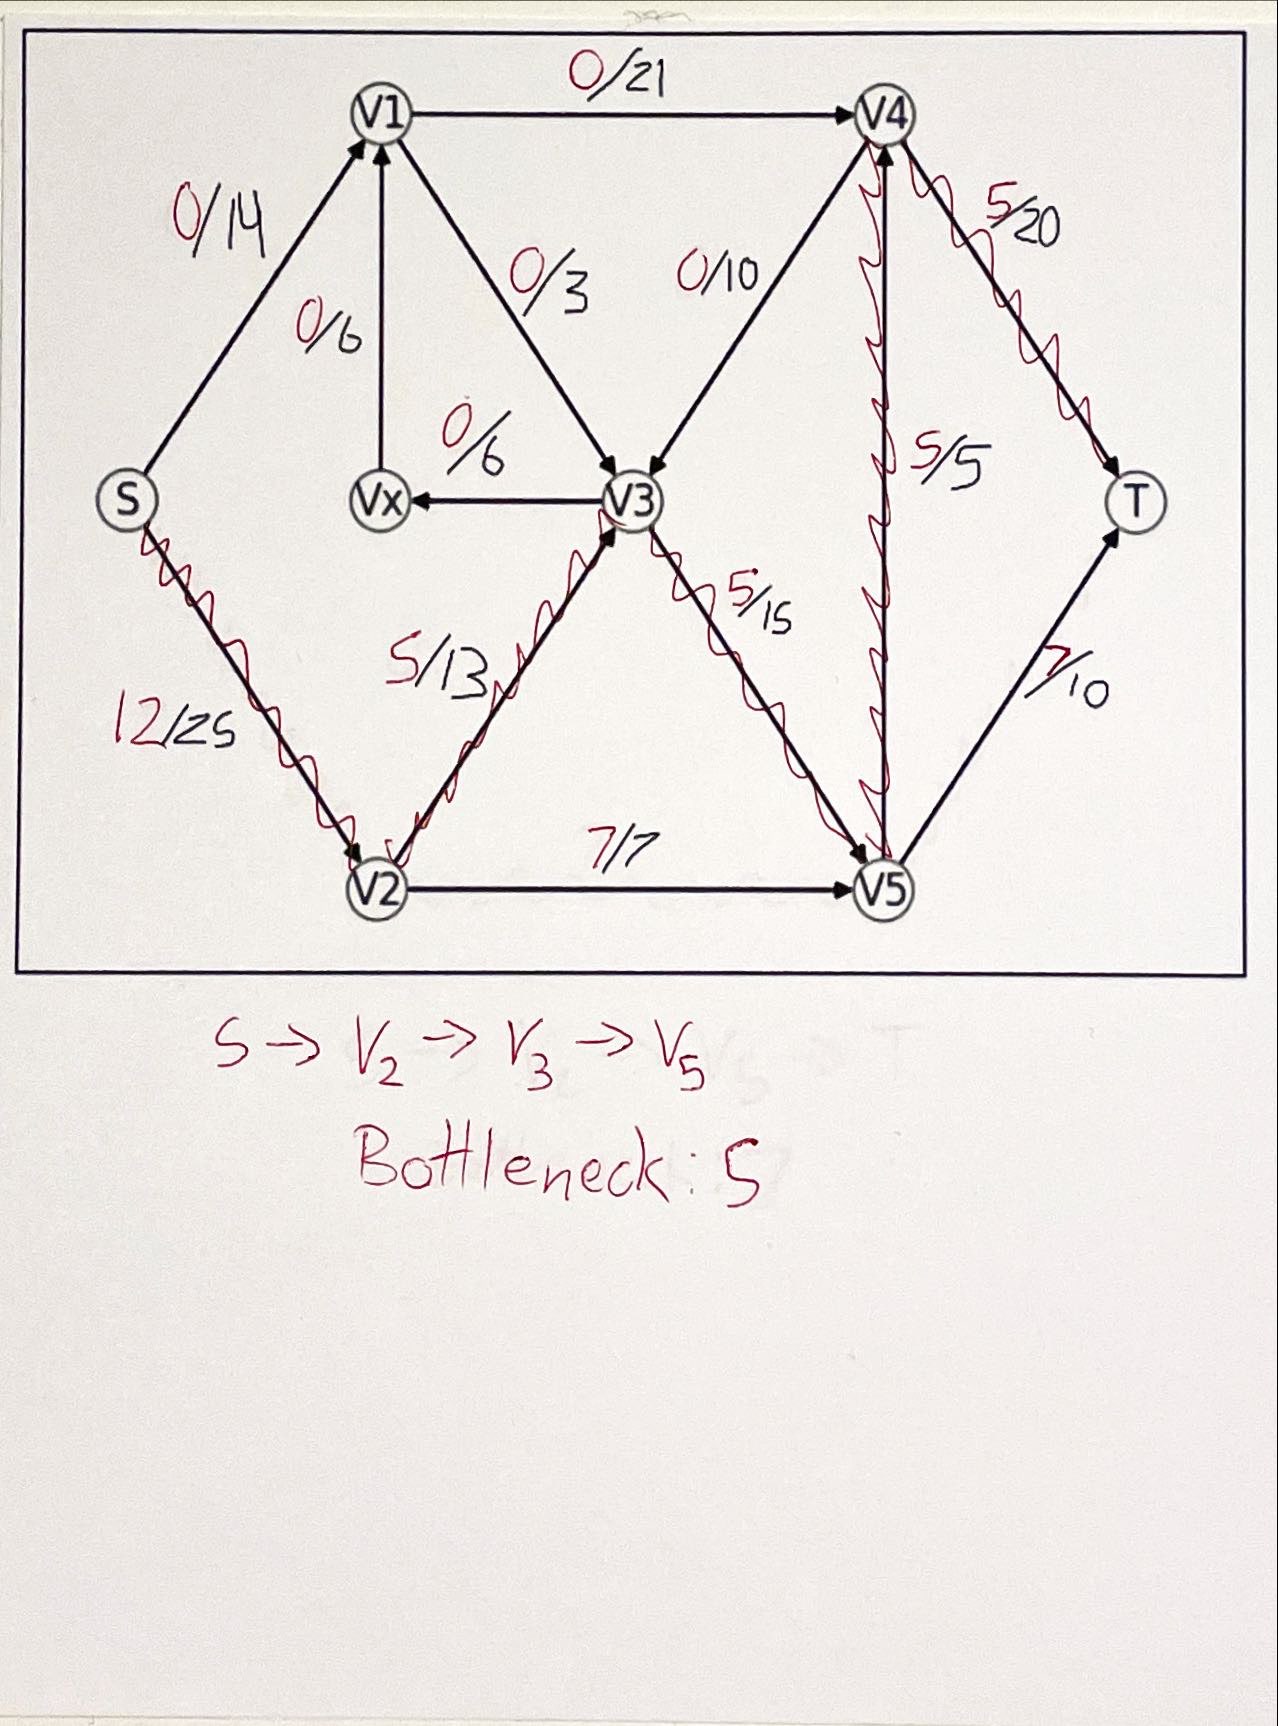 0/21
V1 V4
0/14 5/20
0/3 0/10
0/6
0/6 5/5
S Vx V3 T
5/15
5/13 7/10
12/25
7/7
V2 V5
S → V2 → V3 → V5
Bottleneck: 5